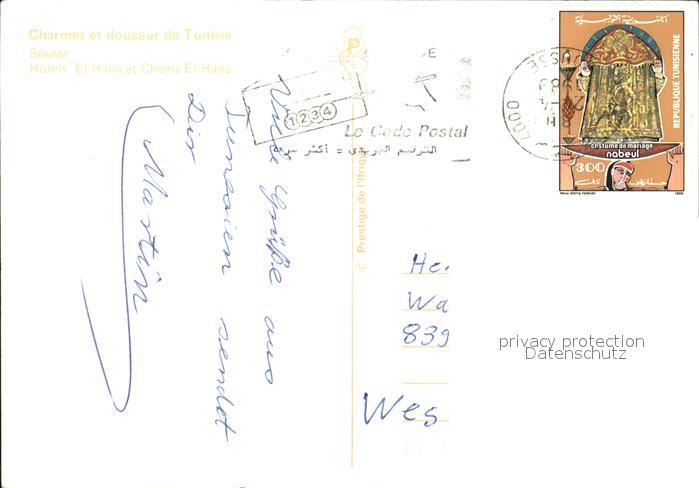 Charmes et douceur de Tunisie
Sousse
Hotels El Hana et Chems El Hana
Viele Grüße aus
Tunesien sendet
Dir
Martin
© Prestige de l'Afrique
1234
Le Code Postal
الترقيم البريدي = أكثر سرعة
4000
SSE
الجمهورية التونسية
REPUBLIQUE TUNISIENNE
costume de mariage
nabeul
300
1986
He
Wa
839
Wes
privacy protection
Datenschutz